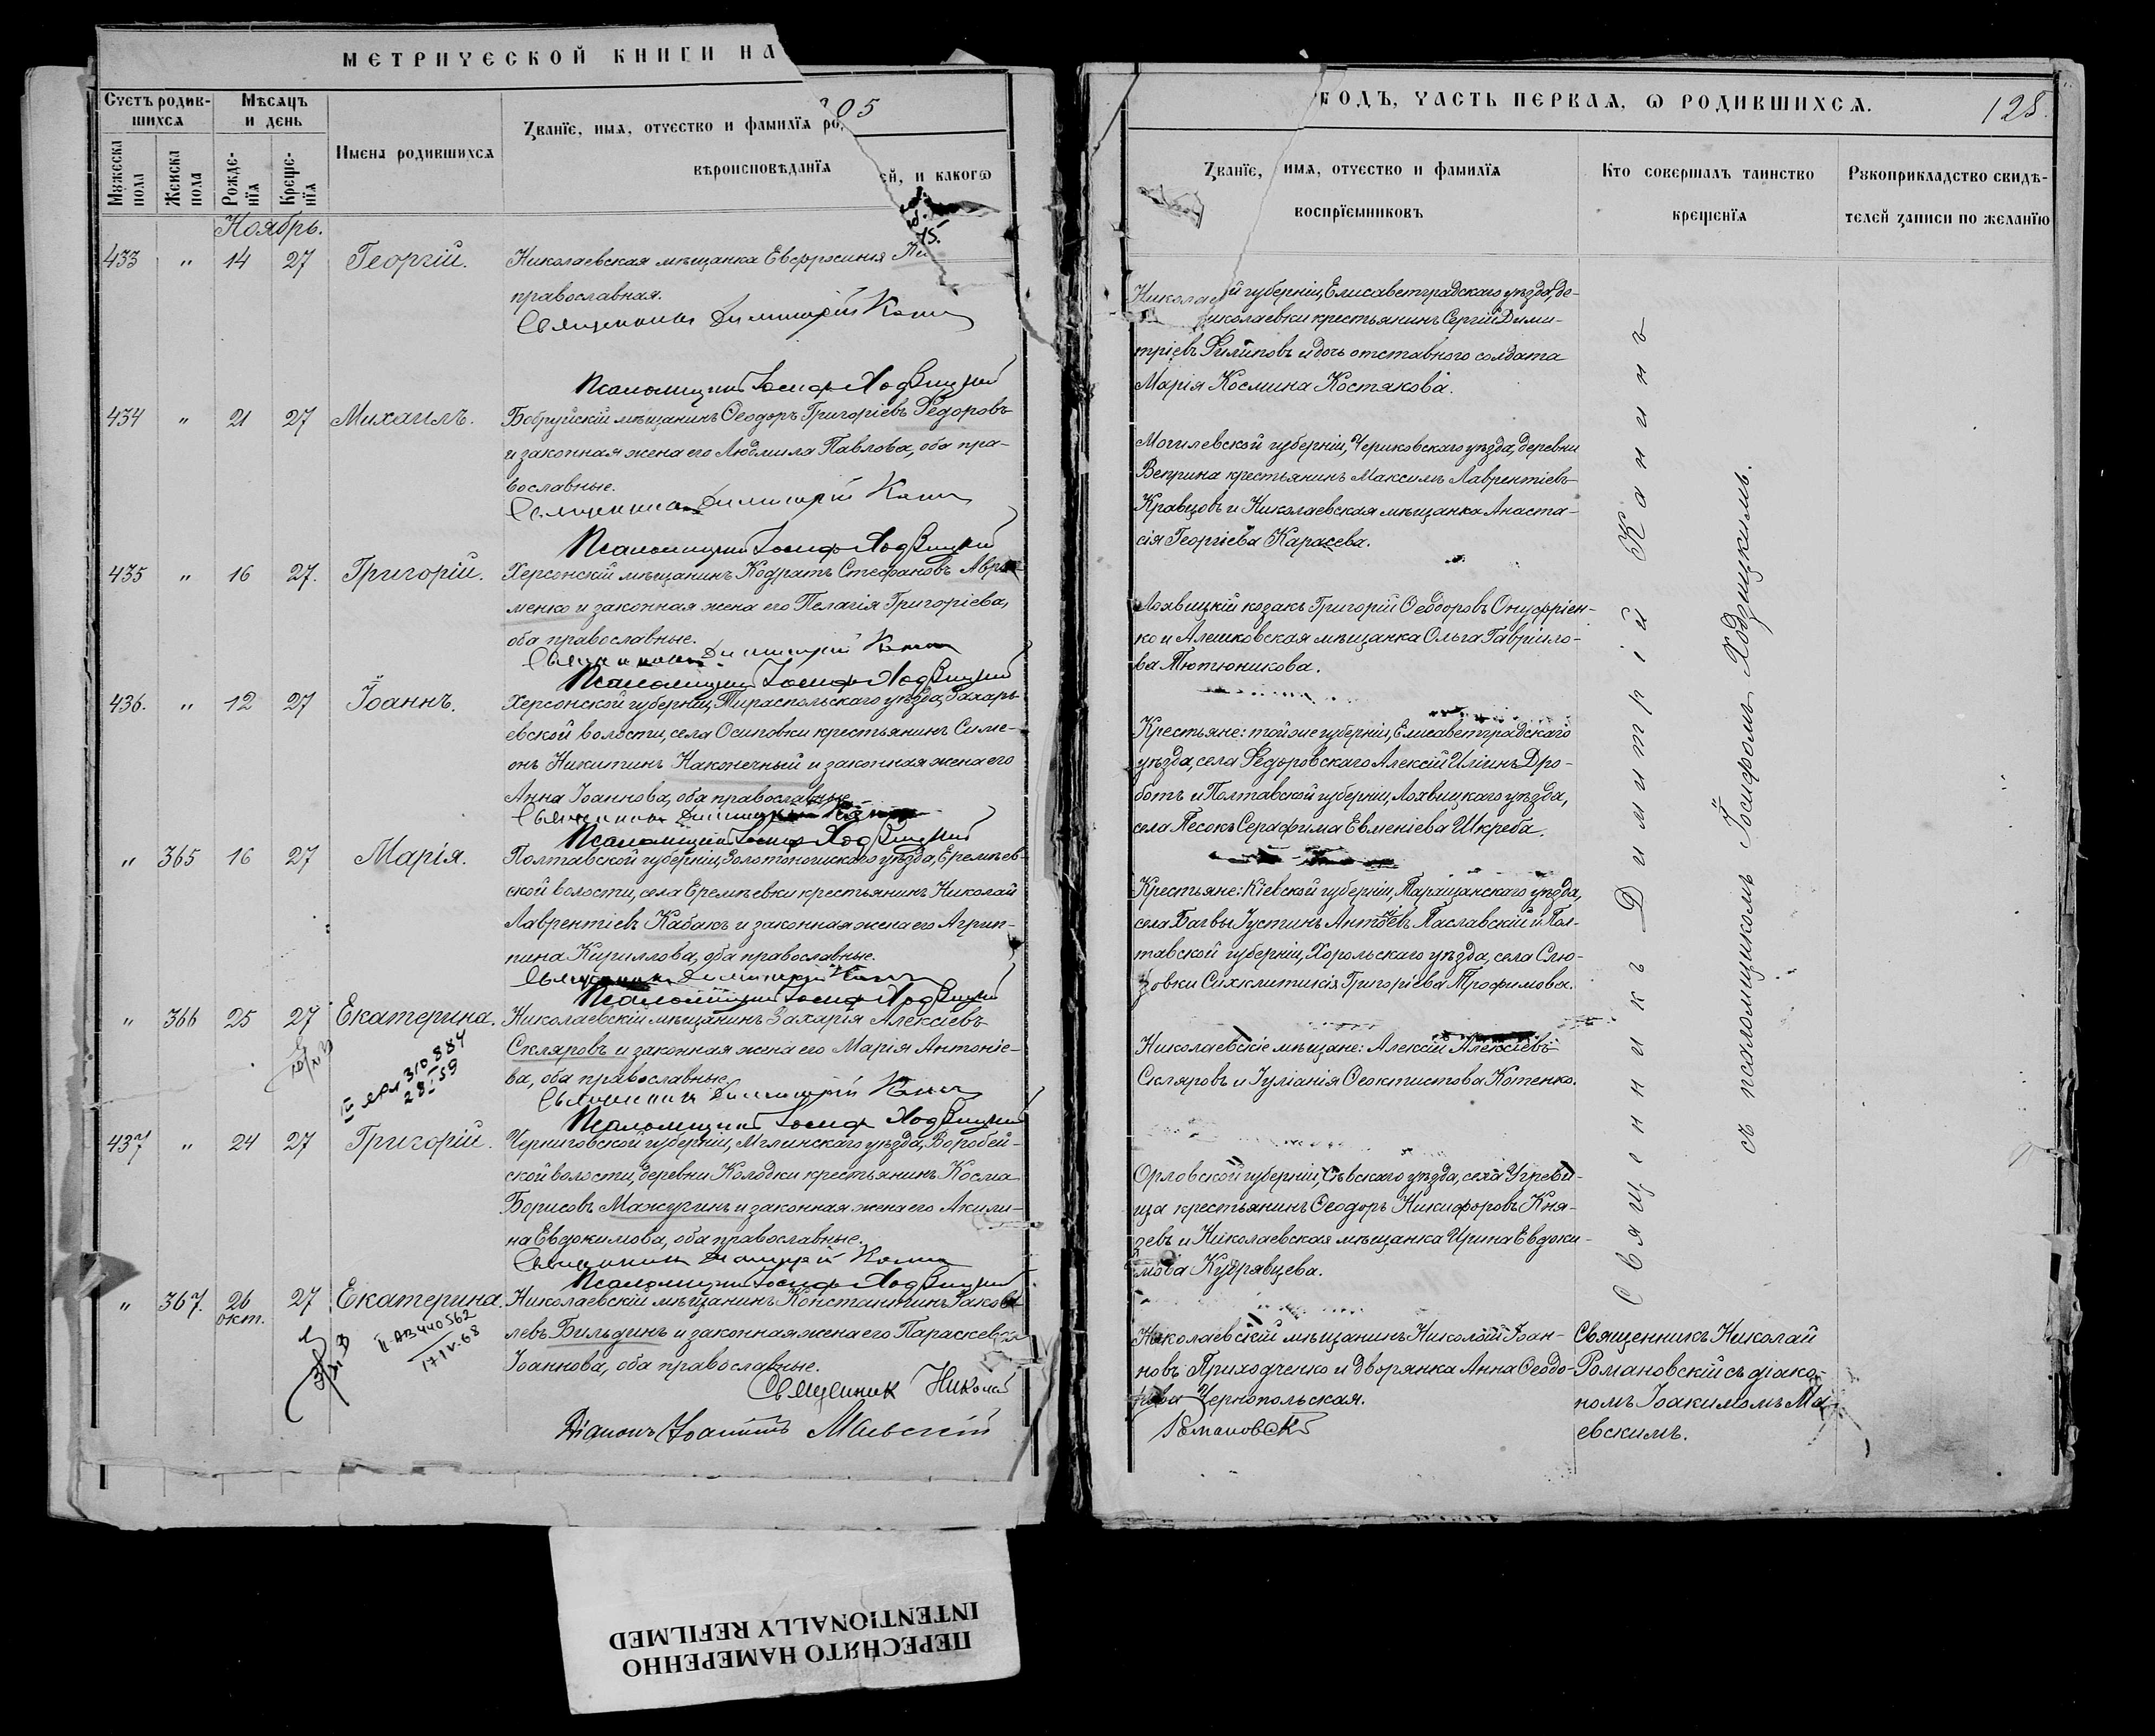 МЕТРИЧЕСКОЙ КНИГИ НА
05
ГОДЪ, ЧАСТЬ ПЕРВАЯ, Ѡ РОДИВШИХСЯ.
128.
Счетъ родив-
шихся
Мѣсяцъ
и день
Имена родившихся
Званїе, имя, отчество и фамилїя ро
ей, и какогѡ
вѣроисповѣданїя
Мꙋжеска
пола
Женска
пола
Рожде-
нїя
Креще-
нїя
Званїе, имя, отчество и фамилїя
воспрїемниковъ
Кто совершалъ таинство
крещенїя
Рꙋкоприкладство свидѣ-
телей записи по желанїю
Ноябрь.
433 " 14 27 Георгій.
Николаевская мѣщанка Евфросинія
православная.
Священникъ Димитрій Канинъ
Псаломщикъ Іосифъ Ходзицкій
й губерніи, Елисаветградскаго уѣзда, де-
иколаевки крестьянинъ Сергій Дими-
тріевъ Филиповъ и дочь отставного солдата
Марія Космина Костякова.
434 " 21 27 Михаилъ.
Бобруйскій мѣщанинъ Ѳеодоръ Григоріевъ Федоровъ
и законная жена его Людмила Павлова, оба пра-
вославные.
Священникъ Димитрій Канинъ
Псаломщикъ Іосифъ Ходзицкій
Могилевской губерніи, Чериковскаго уѣзда, деревни
Веприна крестьянинъ Максимъ Лаврентіевъ
Кравцовъ и Николаевская мѣщанка Анаста-
сія Георгіева Карасева.
435 " 16 27. Григорій.
Херсонскій мѣщанинъ Кодратъ Стефановъ Авра-
менко и законная жена его Пелагія Григоріева,
оба православные.
Священникъ Димитрій Канинъ
Псаломщикъ Іосифъ Ходзицкій
Лохвицкій козакъ Григорій Ѳеодоровъ Онуфріен-
ко и Алешковская мѣщанка Ольга Гавріило-
ва Тютюникова.
436. " 12 27 Іоаннъ.
Херсонской губерніи, Тираспольскаго уѣзда, Захарь-
евской волости, села Осиповки крестьянинъ Симе-
онъ Никитинъ Наконечный и законная жена его
Анна Іоаннова, оба православные.
Священникъ Димитрій Канинъ
Псаломщикъ Іосифъ Ходзицкій
Крестьяне: той же губерніи, Елисаветградскаго
уѣзда, села Федоровскаго Алексій Иліинъ Дро-
ботъ и Полтавской губерніи, Лохвицкаго уѣзда,
села Песокъ Серафима Евменіева Шкреба.
" 365 16 27 Марія.
Полтавской губерніи, Золотоношскаго уѣзда, Еремѣев-
ской волости, села Еремѣевки крестьянинъ Николай
Лаврентіевъ Кабакъ и законная жена его Агрип-
пина Кириллова, оба православные.
Священникъ Димитрій Канинъ
Псаломщикъ Іосифъ Ходзицкій
Крестьяне: Кіевской губерніи, Таращанскаго уѣзда,
села Багвы Іустинъ Антоніевъ Паславскій и Пол-
тавской губерніи, Хорольскаго уѣзда, села Слю-
зовки Сихклитикія Григоріева Трофимова.
" 366 25 27 Екатерина.
Николаевскій мѣщанинъ Захарія Алексіевъ
Скляровъ и законная жена его Марія Антоніе-
ва, оба православные.
Священникъ Димитрій Канинъ
Псаломщикъ Іосифъ Ходзицкій
310884
28 I 59
Николаевскіе мѣщане: Алексій Алексіевъ
Скляровъ и Іуліанія Ѳеоктистова Котенко.
437 " 24 27 Григорій.
Черниговской губерніи, Мглинскаго уѣзда, Воробей-
ской волости, деревни Колодки крестьянинъ Косма
Борисовъ Мажугинъ и законная жена его Акили-
на Евдокимова, оба православные.
Священникъ Димитрій Канинъ
Псаломщикъ Іосифъ Ходзицкій
Орловской губерніи, Сѣвскаго уѣзда, села Угреви-
ща крестьянинъ Ѳеодоръ Никифоровъ Кня-
зевъ и Николаевская мѣщанка Ирина Евдоки-
мова Кудрявцева.
" 367. 26 окт. 27 Екатерина.
Николаевскій мѣщанинъ Константинъ Іаков-
левъ Бильдинъ и законная жена его Параскева
Іоаннова, оба православные.
Священник Николай
Романовскій
Діаконъ Іоакимъ Маевскій
II-АВ 440562
17 IV-68
Николаевскій мѣщанинъ Николай Іоан-
новъ Приходченко и дворянка Анна Ѳеодо-
рова Чернопольская.
Священникъ Николай
Романовскій съ діако-
номъ Іоакимомъ Ма-
евскимъ.
Священникъ Димитрій Канинъ
съ псаломщикомъ Іосифомъ Ходзицкимъ.
ПЕРЕСНЯТО НАМЕРЕННО
INTENTIONALLY REFILMED